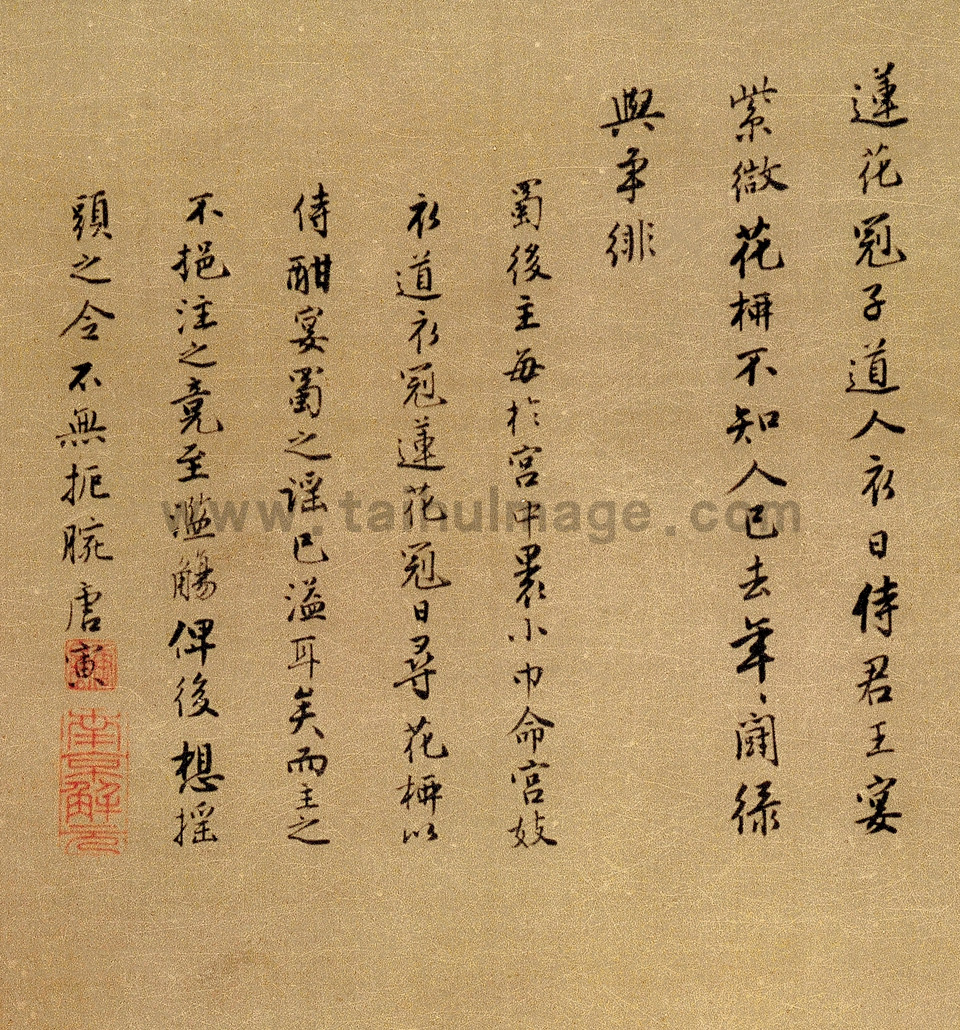 蓮花冠子道人衣日侍君王宴
紫微花柳不知人已去年〻鬪綠
與爭緋
蜀後主每於宮中裹小巾命宮妓
衣道衣冠蓮花冠日尋花柳以
侍酣宴蜀之謠已溢耳矣而主之
不挹注之竟至濫觴俾後想搖
頭之令不無扼腕唐寅
南京解元
www.taihuImage.com